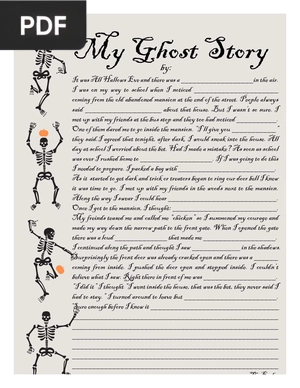 PDF
My Ghost Story
by:
It was All Hallows Eve and there was a in the air.
I was on my way to school when I noticed
coming from the old abandoned mansion at the end of the street. People always
said about that house. But I wasn't so sure. I
met up with my friends at the bus stop and they too had noticed
One of them dared me to go inside the mansion. "I'll give you
they said. I agreed that tonight, after dark, I would sneak into the house. All
day at school I worried about the bet. Had I made a mistake? As soon as school
was over I rushed home to . If I was going to do this
I needed to prepare. I packed a bag with
As it started to get dark and trick or treaters began to ring our door bell I knew
it was time to go. I met up with my friends in the woods next to the mansion.
Along the way I swear I could hear
Once I got to the mansion, I thought
My friends teased me and called me "chicken" so I summoned my courage and
made my way down the narrow path to the front gate. When I opened the gate
there was a loud that made me
I continued along the path and thought I saw in the shadows
Surprisingly the front door was already cracked open and there was a
coming from inside. I pushed the door open and stepped inside. I couldn't
believe what I saw. Right there in front of me was
"I did it" I thought "I went inside the house, that was the bet, they never said I
had to stay." I turned around to leave but
Sure enough before I knew it